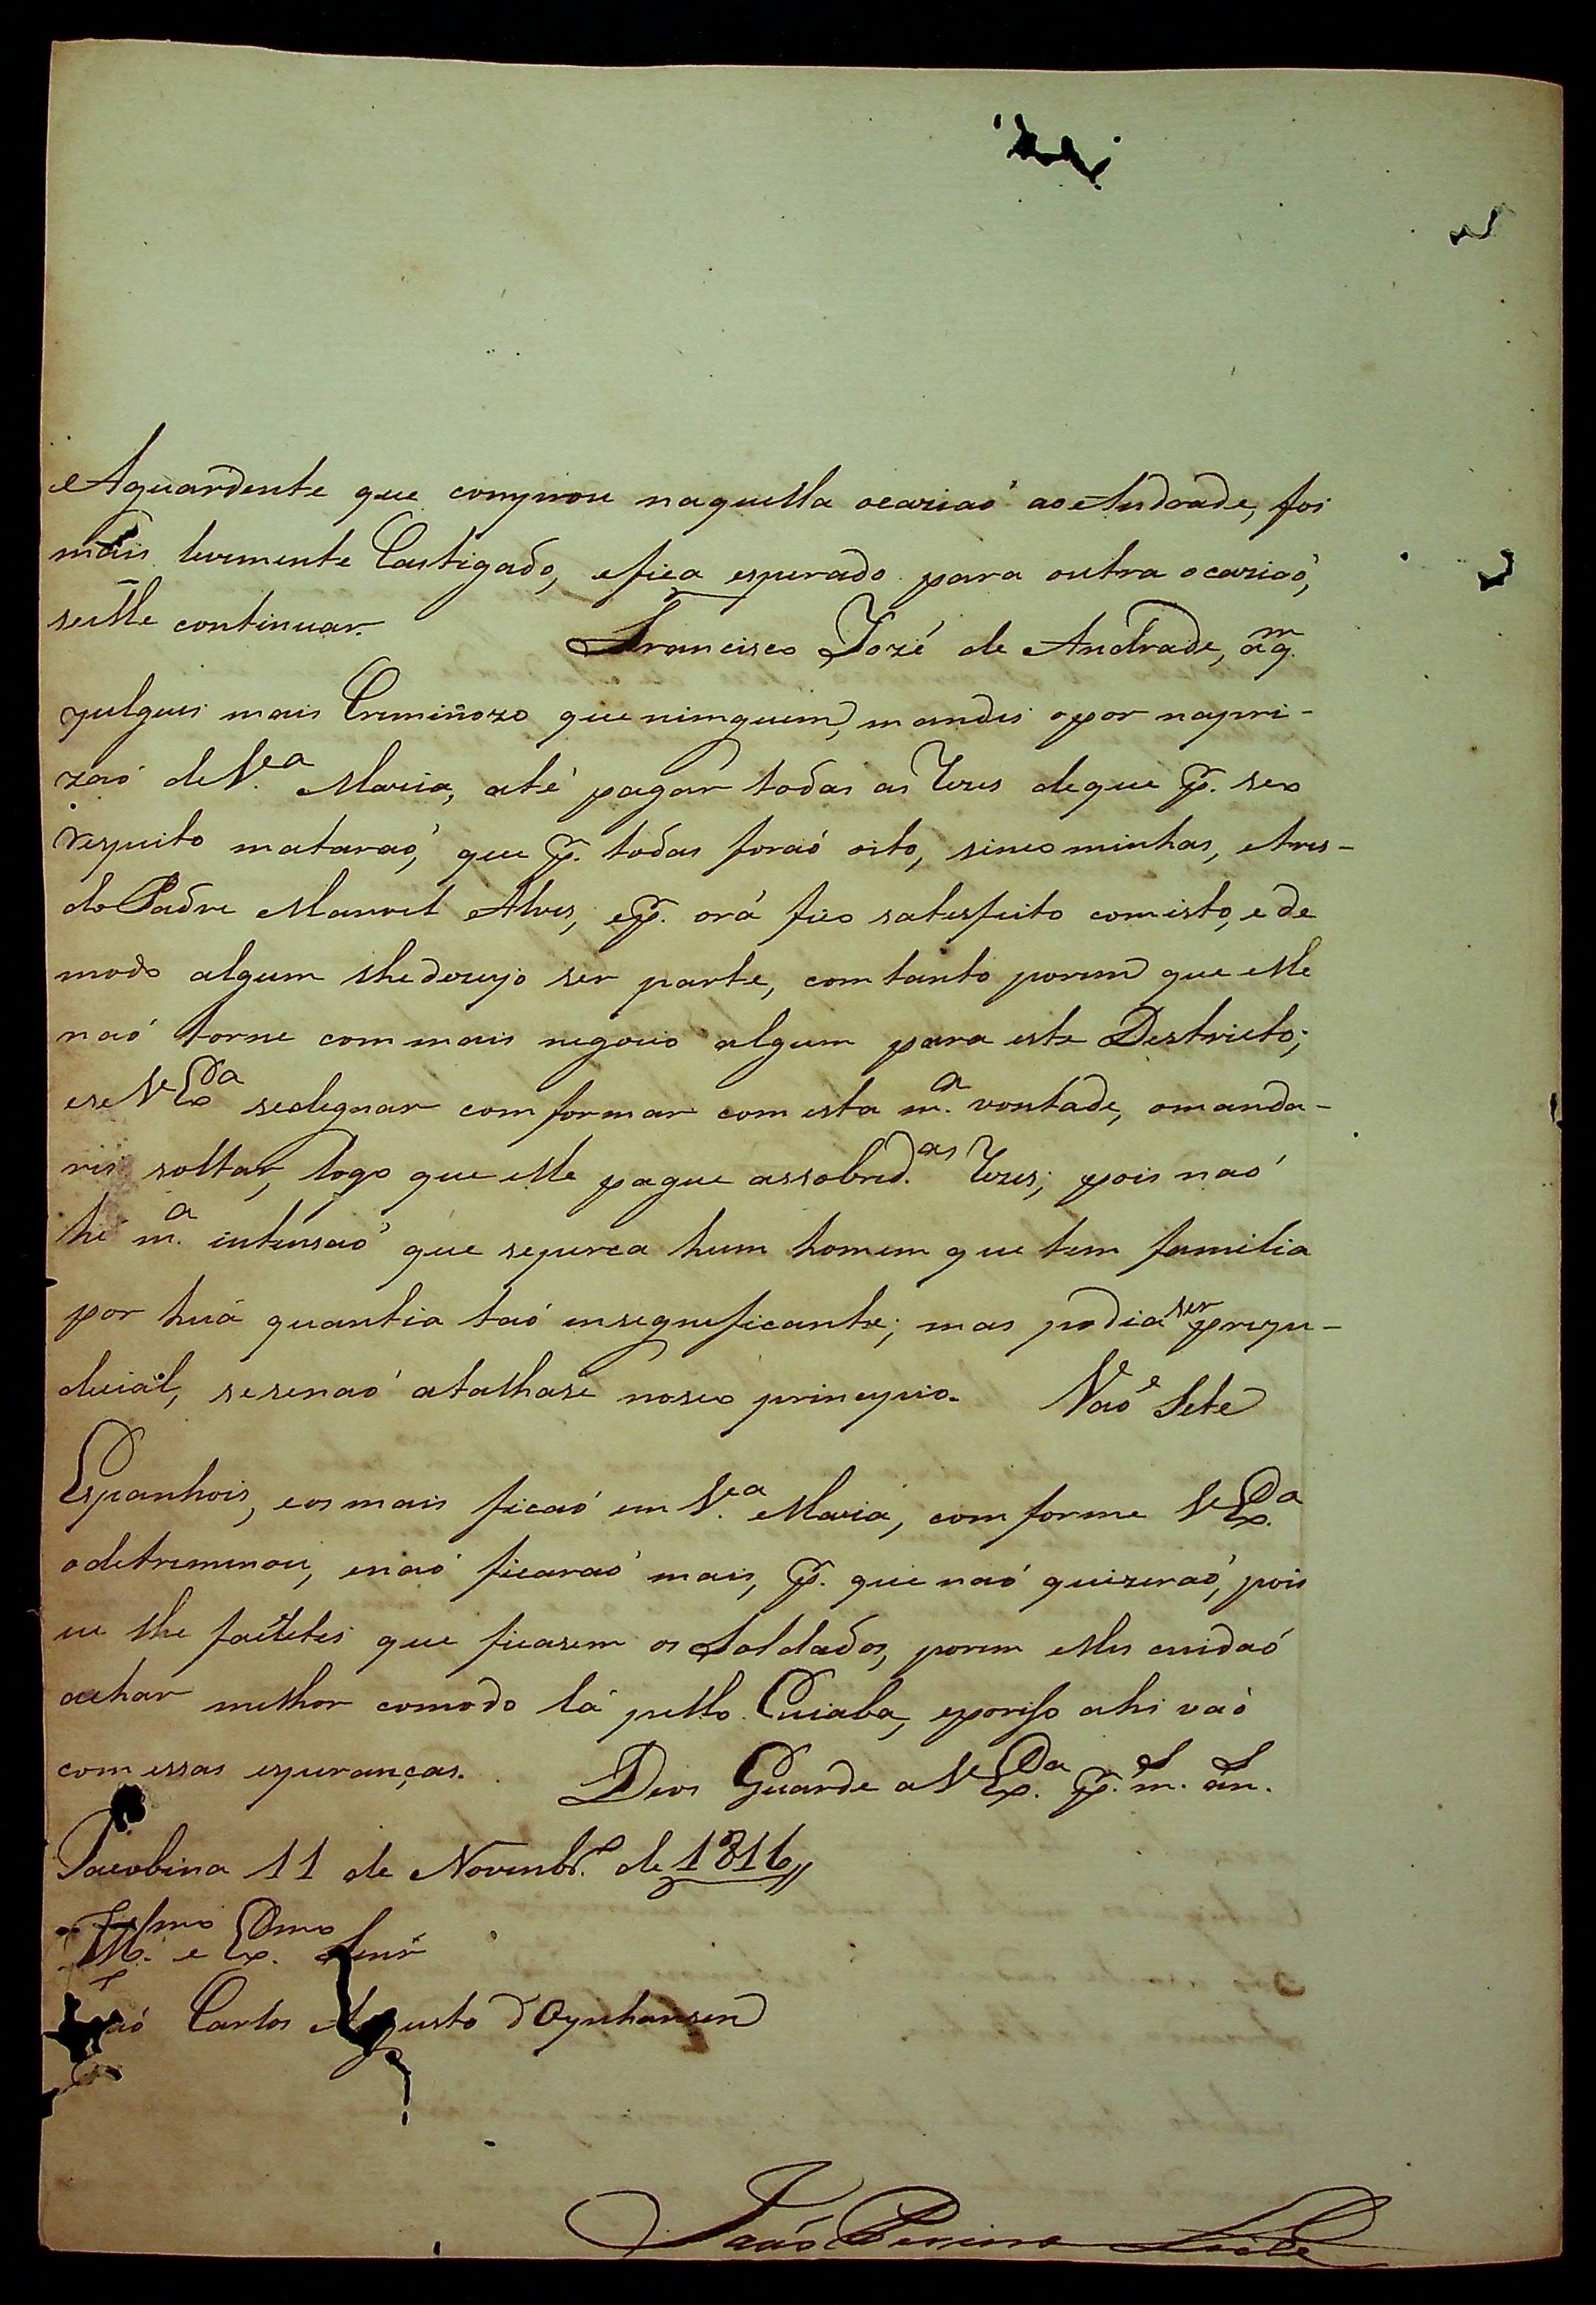 Aguardente que comprou naquella ocaziaó ao Andrade, foi
mais levemente Castigado, efica esperado para outra ocaziaó,
seelle continuar. Francisco Jozé de Andrade, aq.m
julguei mais Crimiñozo que nimguem, mandei opor napri-
zaó de V.ª Maria, até pagár todas as Rezes deque p. seo
respeito mataraó, que p. todas foraó oito, sinco minhas, etres-
do Padre Manoel Alves, ep. orá fico satesfeito comisto, e de
modo algum lhedezejo ser parte, com tanto porem que elle
naó torne com mais negocio algum para este Destricto;
ese V Ex.cia sedegnar com formar com esta m.ª vontade, omanda-
rei soltar, logo que elle pague assobred.as Rezes; pois naó
hé m.ª intensaó que seperca hum homem que tem familia
por huá quantia taó ensegneficante; mas podia ser preju-
decial, sesenaó atalhase noseo principio. Vaó Sete
Espanhois, eos mais ficaó em V.ª Maria, com forme V Ex.cia
odetreminou, enaó ficaraó mais, p. que naó quizeraó, pois
eu lhe facelitei que ficasem os Soldados, porem elles cuidaó
achar milhor comodo lá pello Cuiaba, eporiso ahi vaó
com essas esperanças. Deos Guarde a V Ex.cia p. m. an.s
Jacobina 11 de Novembr.º de 1816
Ill.mo e Ex.mo Senr
Carlos Augusto d'Oynhausen
Joaó Pereira Leite